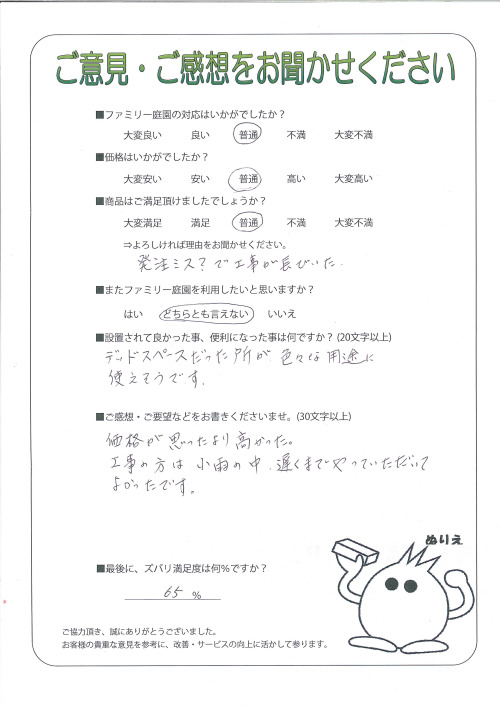 ご意見・ご感想をお聞かせください
■ファミリー庭園の対応はいかがでしたか？
大変良い 良い 普通 不満 大変不満
■価格はいかがでしたか？
大変安い 安い 普通 高い 大変高い
■商品はご満足頂けましたでしょうか？
大変満足 満足 普通 不満 大変不満
⇒よろしければ理由をお聞かせください。
発注ミス？で工事が長びいた.
■またファミリー庭園を利用したいと思いますか？
はい どちらとも言えない いいえ
■設置されて良かった事、便利になった事は何ですか？(20文字以上)
デッドスペースだった所が 色々な用途に
使えそうです.
■ご感想・ご要望などをお書きくださいませ。(30文字以上)
価格が思ったより高かった。
工事の方は 小雨の中、遅くまでやっていただいて
よかったです。
ぬりえ
■最後に、ズバリ満足度は何％ですか？
65 %
ご協力頂き、誠にありがとうございました。
お客様の貴重な意見を参考に、改善・サービスの向上に活かして参ります。